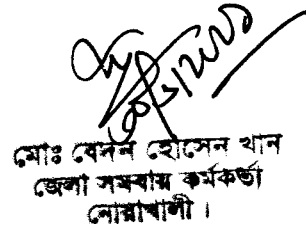 মোঃ বেলাল হোসেন খান
জেলা সমবায় কর্মকর্তা
নোয়াখালী।